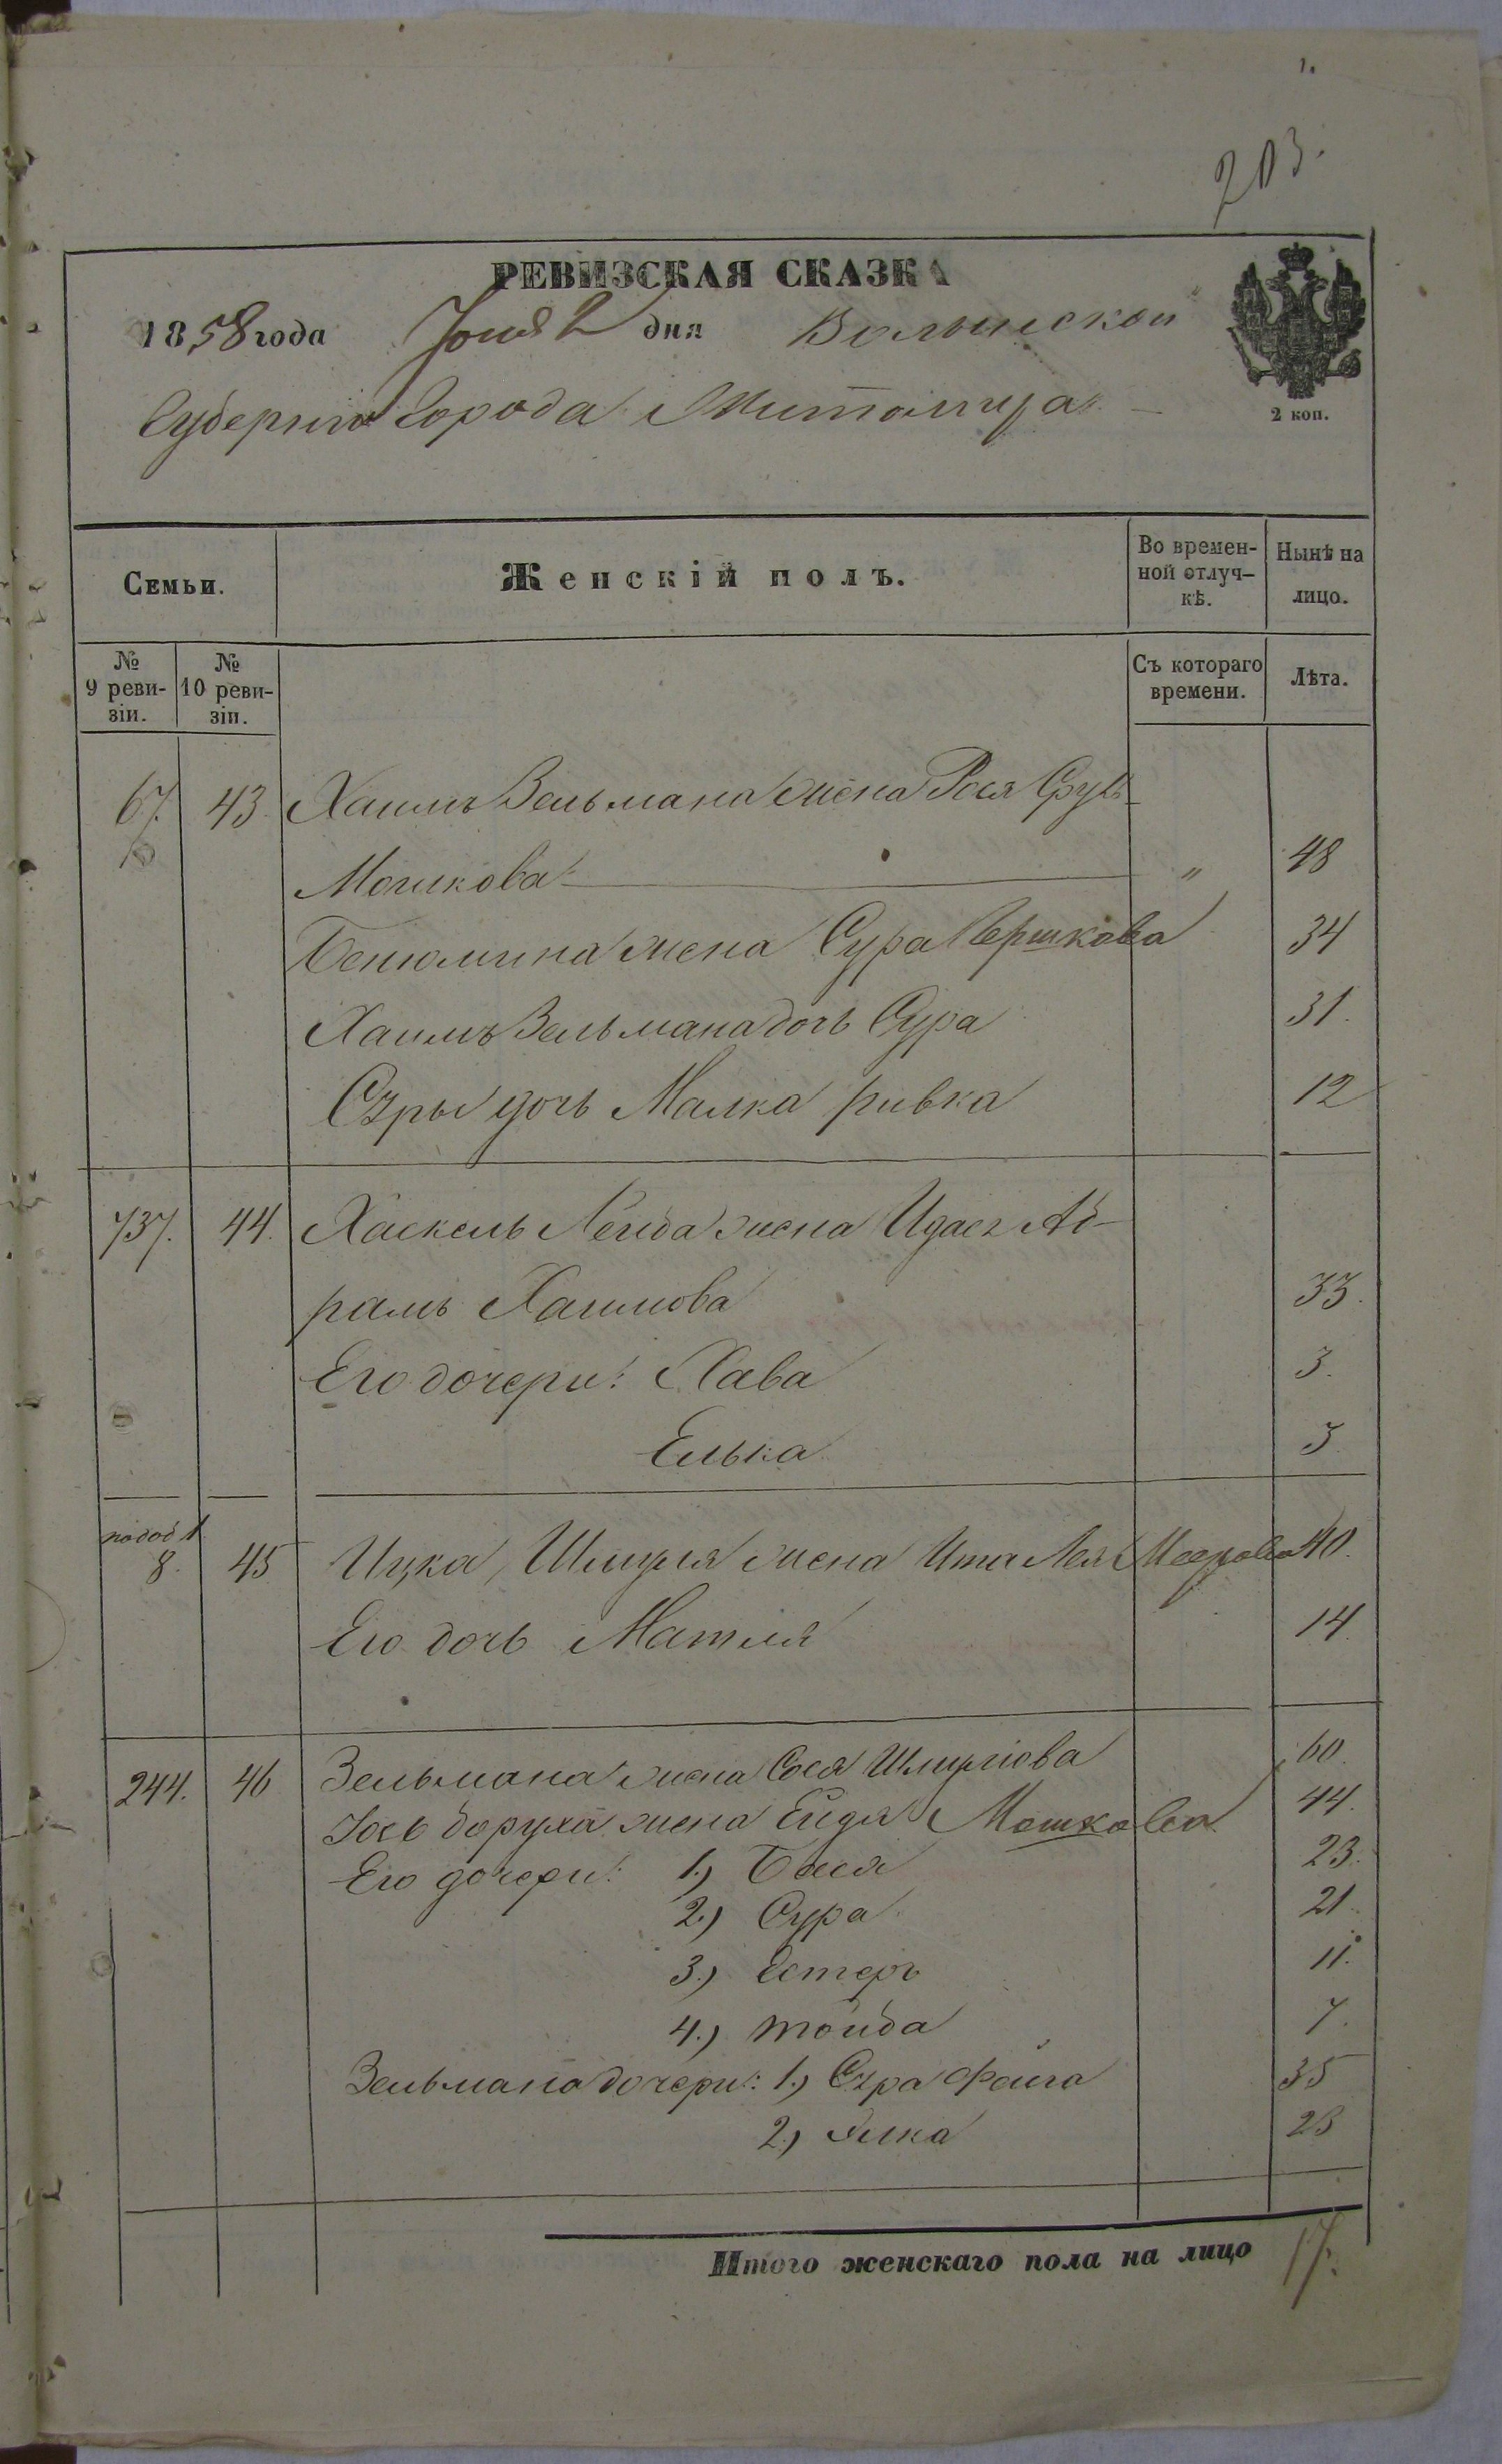 1.
203.
РЕВИЗСКАЯ СКАЗКА
1858 года Юня 2 дня Волынской
Губернии Города Житомира
2 коп.
Семьи.
Женскій полъ.
Во времен-
ной отлуч-
кѣ.
Нынѣ на
лицо.
№
9 реви-
зіи.
№
10 реви-
зіи.
Съ котораго
времени.
Лѣта.
67. 43. Хаимъ Зельмана жена Рося Фрук
Мошкова " 48
Бениомина жена Сура Гершкова 34
Хаимъ Зельмана дочь Сура 31.
Сзры дочь Малка ривка 12
737. 44. Хаскель Лейба жена Идаса Аб-
рамъ Хаимова 33.
Его дочери: Хава 3.
Елька 3
по доб.
8. 45 Ицка, Шмуля жена Ита Лея Меерова 40.
Его дочь Матля 14.
244. 46 Зельмана жена Сося Шмулiова 60.
Иось боруха жена Ейдя Мошкова 44.
Его дочери: 1.) Бася 23.
2.) Сура 21.
3.) Естеръ 11.
4.) тойба 7.
Зельмана дочери: 1.) Сзра фейга 35
2.) 23
Итого женскаго пола на лицо 17.